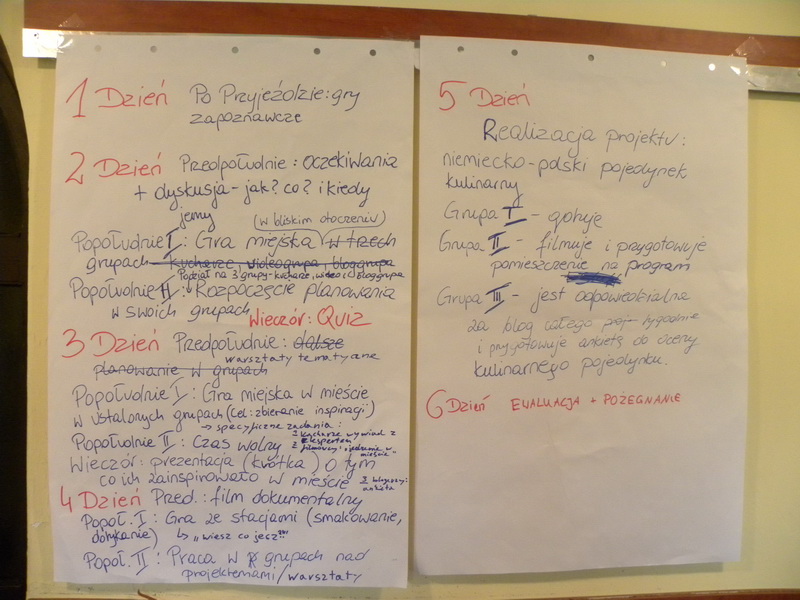 1 Dzień Po Przyjeździe: gry
zapoznawcze
2 Dzień Przedpołudnie: oczekiwania
+ dyskusja – jak? co? i kiedy
jemy (w bliskim otoczeniu)
Popołudnie I: Gra miejska w trzech
grupach – kucharze, videogrupa, bloggrupa
Podział na 3 grupy – kucharze, wideo i bloggrupa
Popołudnie II: Rozpoczęcie planowania
w swoich grupach
Wieczór: QUIZ
3 Dzień Przedpołudnie: dalsze
warsztaty tematyczne
planowanie w grupach
Popołudnie I: Gra miejska w mieście
w ustalonych grupach (cel: zbieranie inspiracji)
→ specyficzne zadania:
Popołudnie II: Czas wolny
1 Kucharze wywiad z
ekspertem
2 filmowcy: "jedzenie w
mieście"
Wieczór: prezentacja (krótka) o tym
co ich zainspirowało w mieście
3 blogerzy:
ankieta
4 Dzień Przed.: film dokumentalny
Popoł. I: Gra ze stacjami (smakowanie,
dotykanie) ↳ "wiesz co jesz?"
Popoł. II: Praca w grupach nad
projektemami/warsztaty
5 Dzień
Realizacja projektu:
niemiecko-polski pojedynek
kulinarny
Grupa I – gotuje
Grupa II – filmuje i przygotowuje
pomieszczenie na program
Grupa III – jest odpowiedzialna
za blog całego tygodnia
i przygotowuje ankietę do oceny
kulinarnego pojedynku.
6 Dzień EWALUACJA + POŻEGNANIE